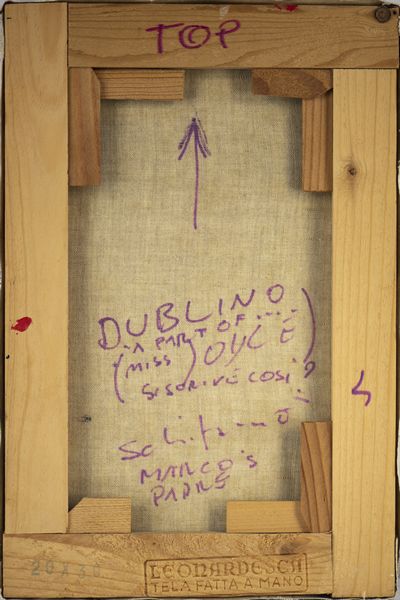 TOP
DUBLINO
A PART OF ....
(MISS) OYCE
SI SCRIVE COSI?
Schifano
MARCO'S
PADRE
20X30
LEONARDESCA
TELA FATTA A MANO